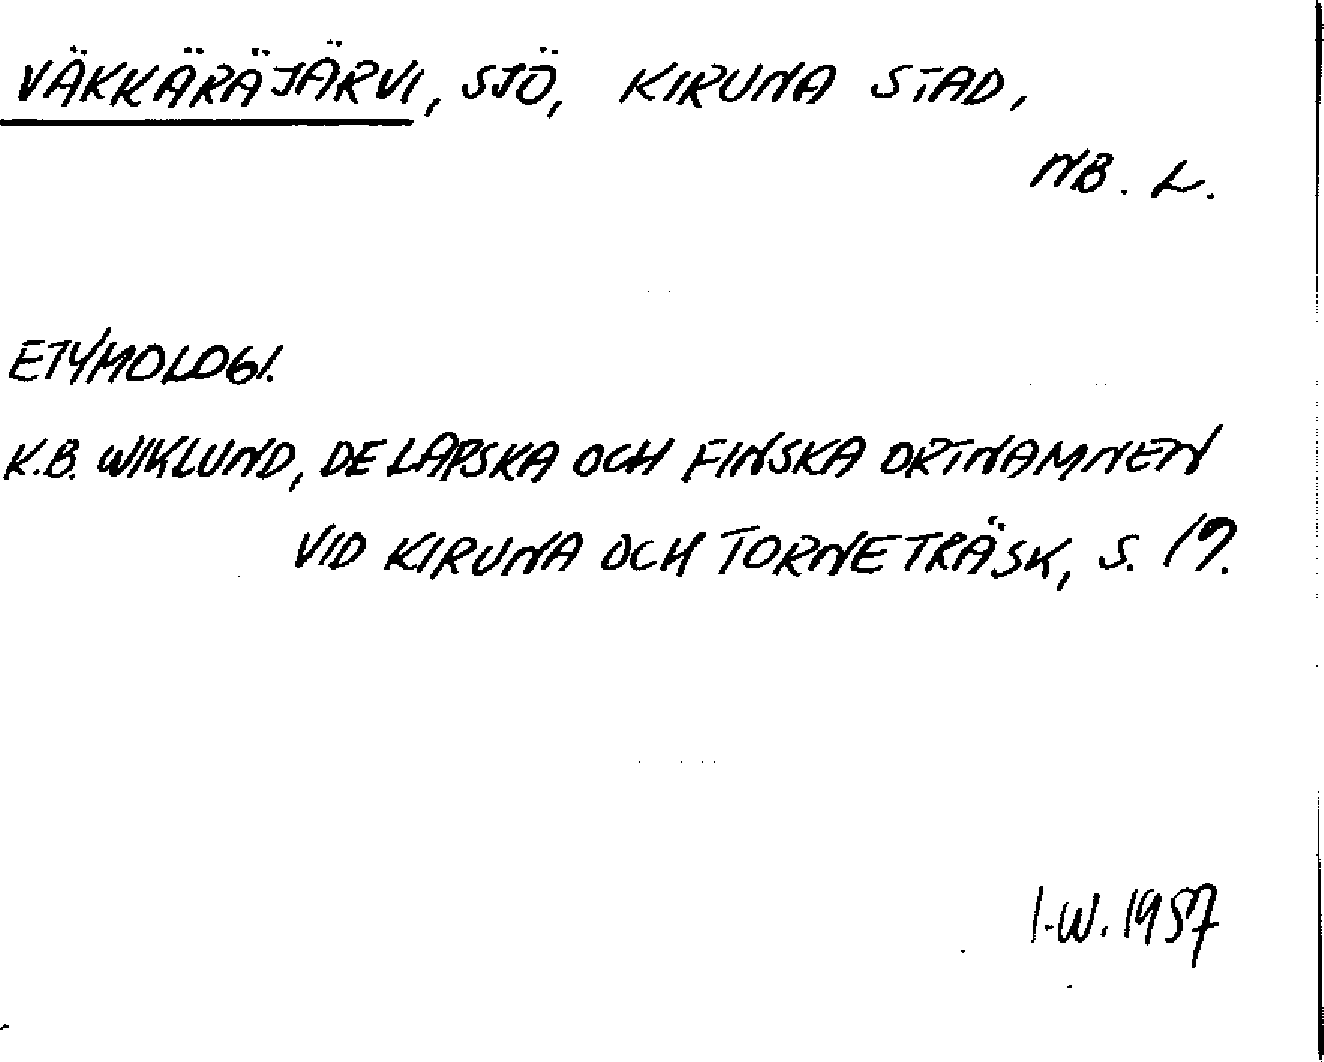 VÄKKÄRÄJÄRVI, SJÖ, KIRUNA STAD,
NB. L.
ETYMOLOGI.
K.B. WIKLUND, DE LAPSKA OCH FINSKA ORTNAMNEN
VID KIRUNA OCH TORNETRÄSK, S. 19.
I.W. 1957